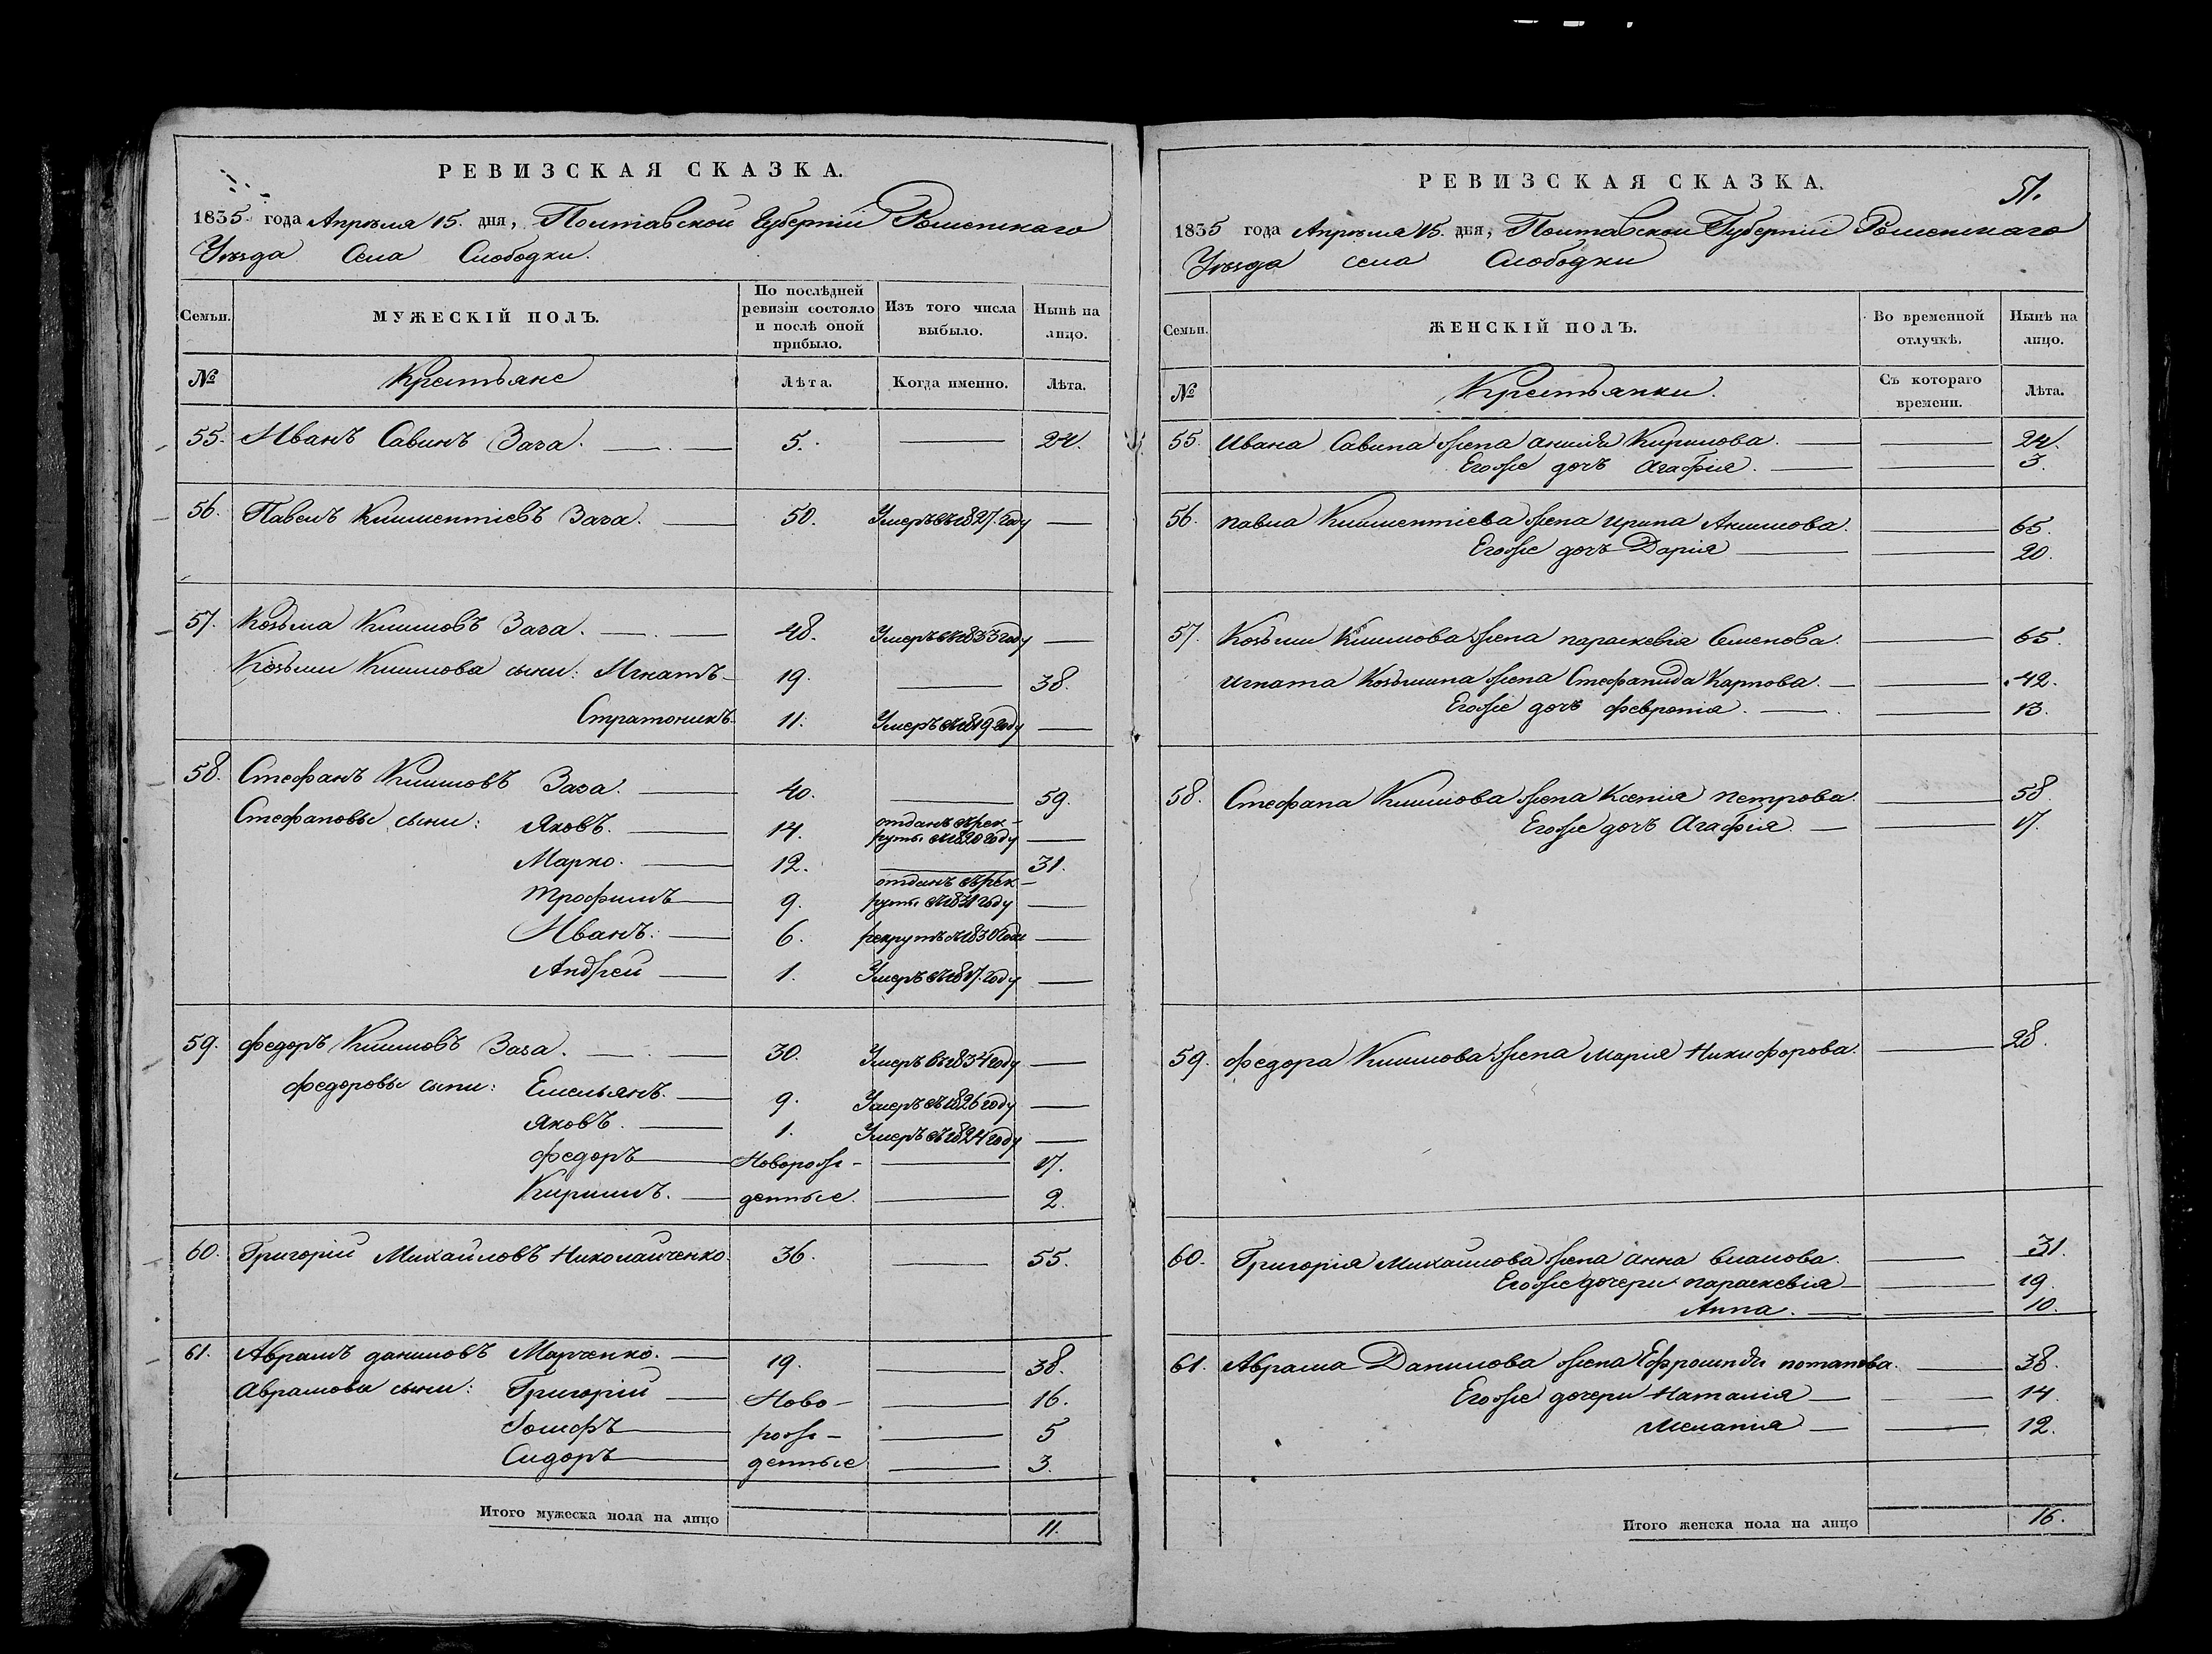 РЕВИЗСКАЯ СКАЗКА.
1835 года Апрѣля 15. дня, Полтавской Губерніи Роменскаго
Уѣзда Села Слободки.
Семьи. МУЖЕСКІЙ ПОЛЪ. По послѣдней ревизіи состояло и послѣ оной прибыло. Изъ того числа выбыло. Нынѣ на лицо.
№ Крестьяне Лѣта. Когда именно. Лѣта.
55. Иванъ Савинъ Заза. 5. 24.
56. Павелъ Климентіевъ Заза. 50. Умеръ въ 1827. году
57. Козьма Климовъ Заза. 48. Умеръ въ 1833 году
Козьмы Климова сыны: Игнатъ 19. 38.
Стратоникъ. 11. Умеръ въ 1819 году
58. Стефанъ Климовъ Заза. 40. 59.
Стефановы сыны: Яковъ. 14. отданъ въ рек-
руты въ 1820 году
Марко. 12. 31.
Трофимъ 9. отданъ въ рек-
руты въ 1831 году
Иванъ. 6. рекрутъ въ 1830 годе
Андрей 1. Умеръ въ 1817. году
59. Федоръ Климовъ Заза. 30. Умеръ въ 1834 году
Федоровы сыны: Емельянъ. 9. Умеръ въ 1826 году
Яковъ. 1. Умеръ въ 1824 году
Федоръ Новорож- 17.
Кирилъ. денные. 2.
60. Григорій Михайловъ Николайченко. 36. 55.
61. Абрамъ Даниловъ Марченко. 19. 38.
Абрамова сыны: Григорій Ново- 16.
Іосифъ рож- 5
Сидоръ денные 3.
Итого мужеска пола на лицо 11.
РЕВИЗСКАЯ СКАЗКА.
51.
1835 года Апрѣля 15. дня, Полтавской Губерніи Роменскаго
Уѣзда села Слободки
Семьи. ЖЕНСКІЙ ПОЛЪ. Во временной отлучкѣ. Нынѣ на лицо.
№ Крестьянки. Съ котораго времени. Лѣта.
55. Ивана Савина жена Кирилова. 24.
Егожe дочь Агафія. 3.
56. Павла Климентіева жена Ирина Акимова. 65.
Егоже дочь Дарія 20.
57. Козьмы Климова жена Параскевія Семенова. 65.
Игната Козьмина жена Стефанида Карпова. 42.
Егоже дочь Февронія. 13.
58. Стефана Климова жена Ксенія Петрова. 58.
Егоже дочь Агафія. 17.
59. Федора Климова жена Марія Никифорова. 28.
60. Григорія Михайлова жена Анна Власова. 31.
Егоже дочери Параскевія 19.
Анна. 10.
61. Абрама Данилова жена Потапова. 38.
Егоже дочери Наталія 14.
Меланія 12.
Итого женска пола на лицо 16.